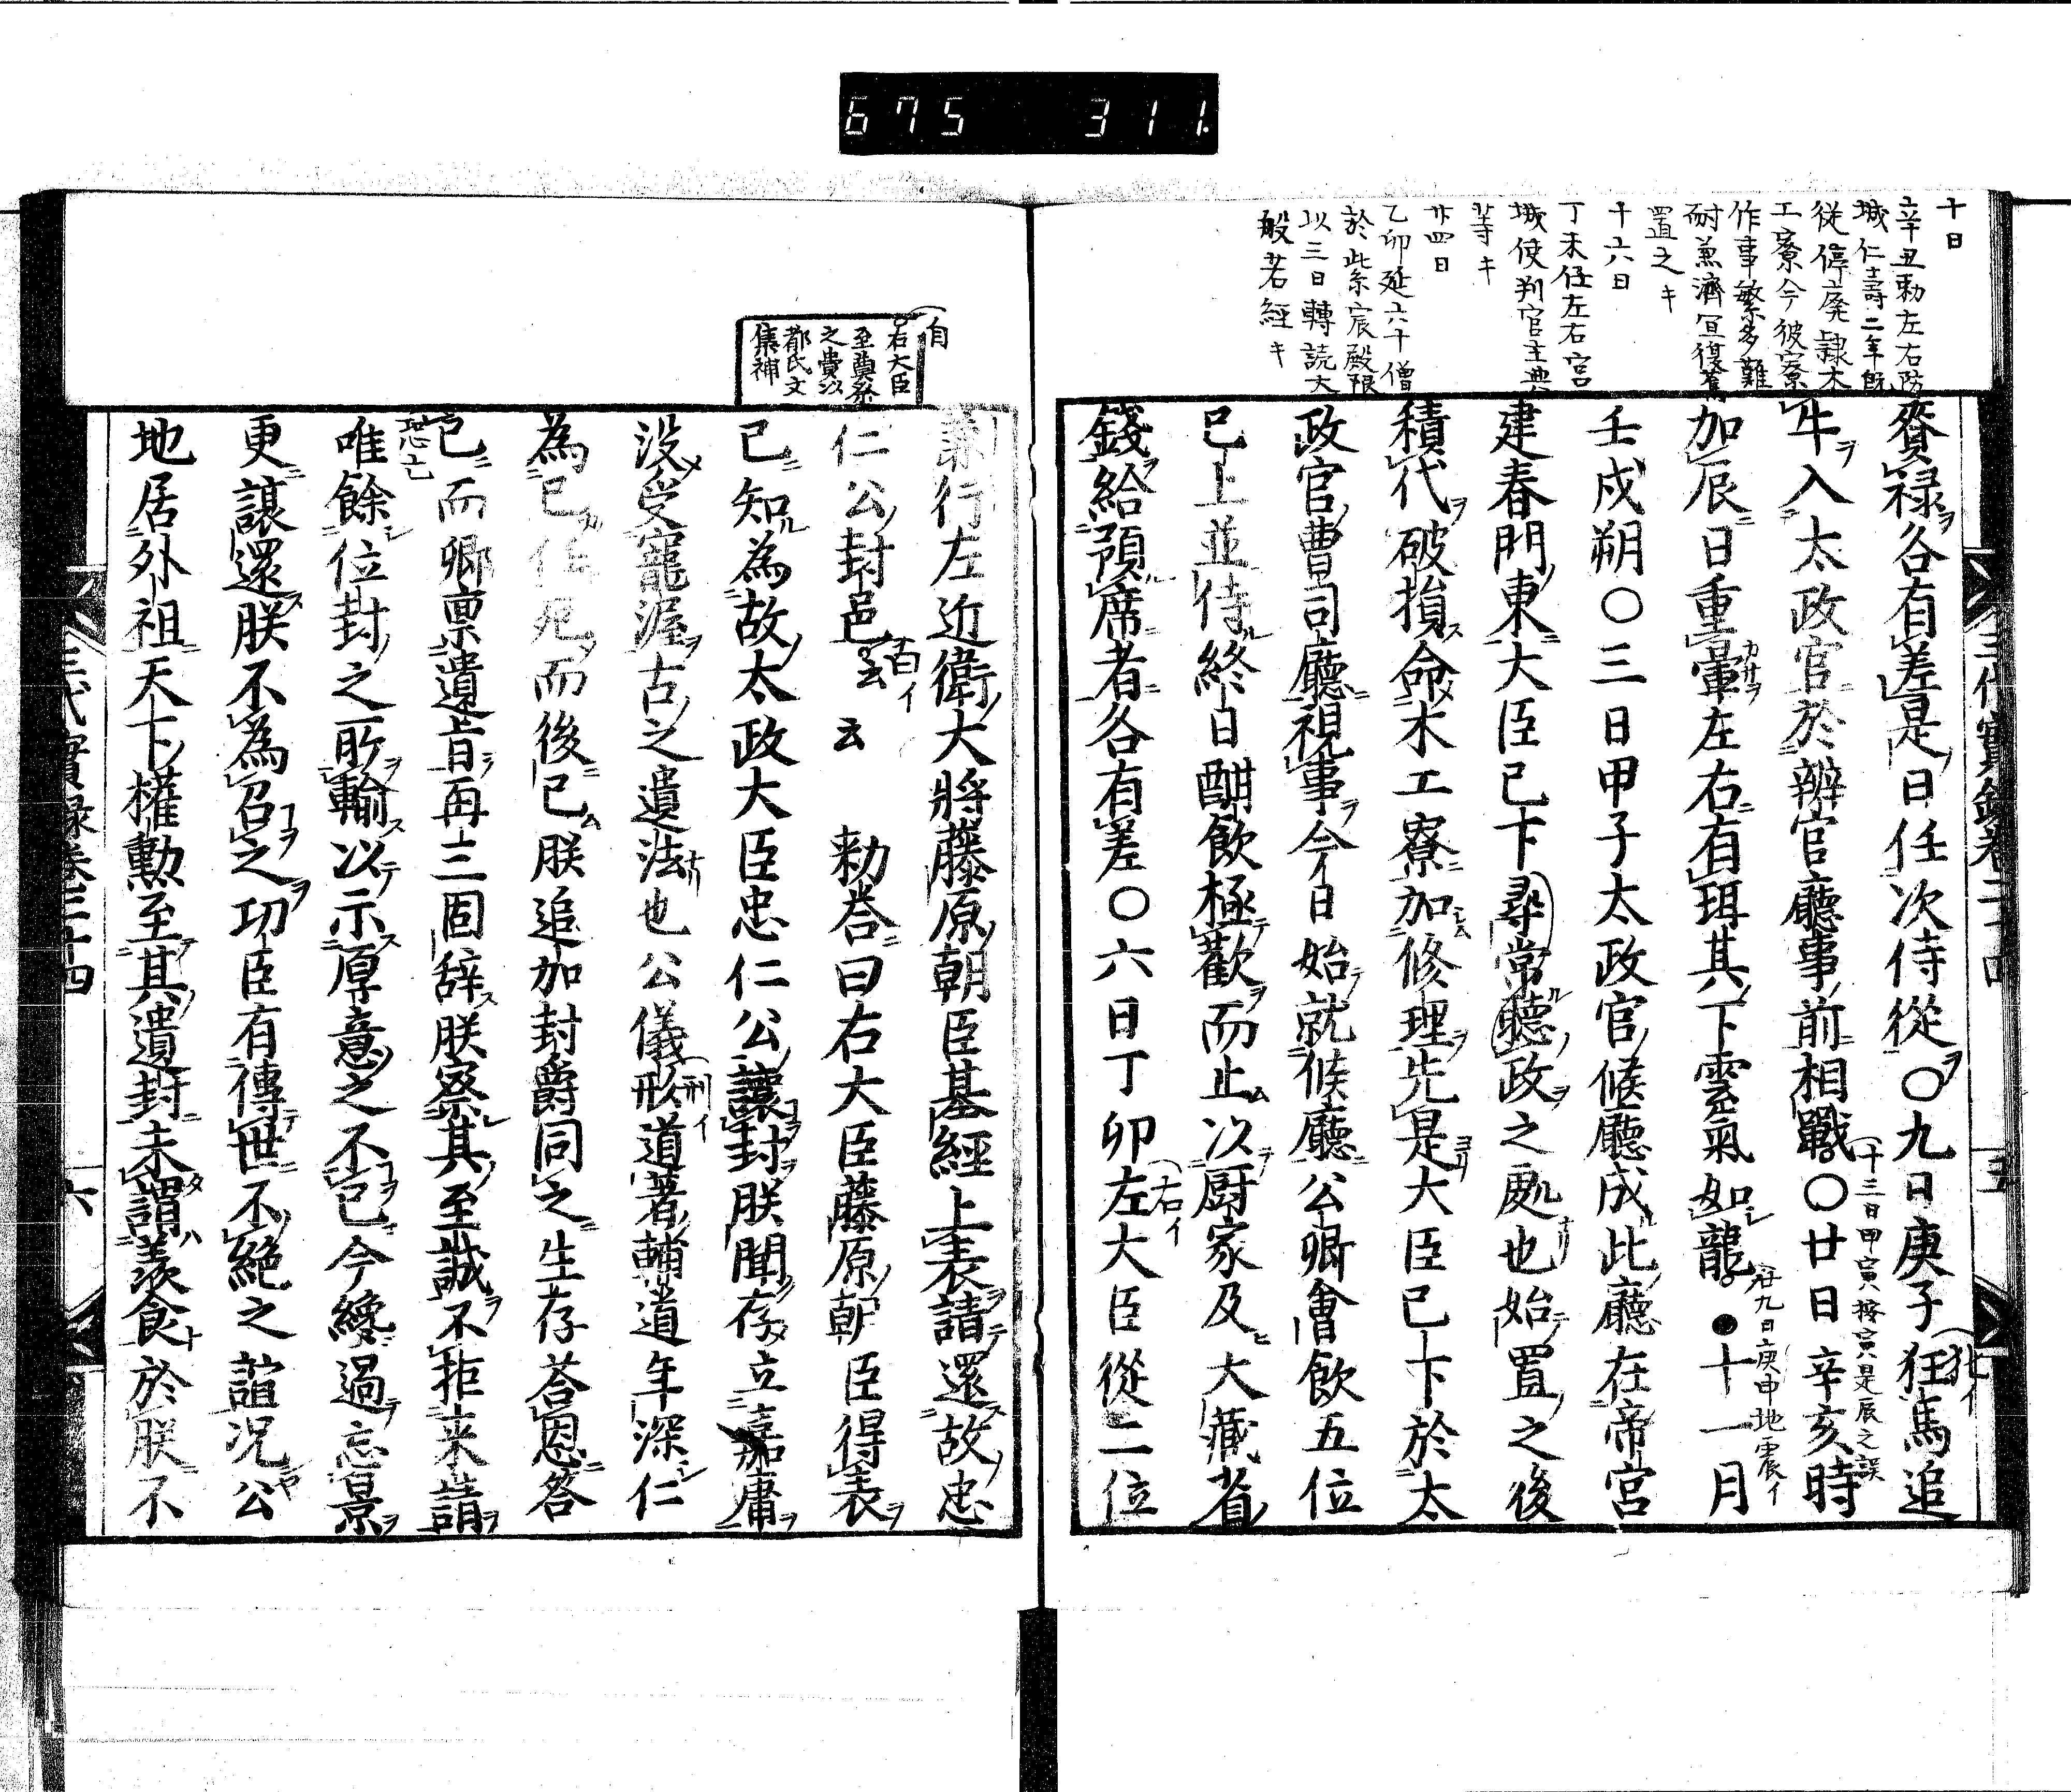 675 311.
十日
辛丑勅左右防
城仁壽二年既
從停廃隷木
工寮今彼寮
作事繁多難
耐兼濟宜復舊
置之キ
十六日
丁未任左右宮
城使判官主典
等キ
廿四日
乙卯延六十僧
於紫宸殿限
以三日轉読大
般若経キ
賚禄各有差是日任次侍從〇九日庚子狂馬追
牛入太政官於辨官廳事前相戰〇廿日辛亥時
十三日甲寅 按寅是辰之誤
加辰日重暈左右有珥其下雲氣如龍●十一月
廿九日庚申地震イ
壬戌朔〇三日甲子太政官候廳成此廳在帝宮
建春門東大臣已下尋常聽政之處也始置之後
積代破損命木工寮加修理先是大臣已下於太
政官曹司廳視事今日始就候廳公卿會飲五位
已上並侍終日酣飲極歡而止以厨家及大藏省
錢給預席者各有差〇六日丁卯左大臣從二位
右イ
三代實録卷二十四 五
自
右大臣
至奠祭
之費以
都氏文
集補
兼行左近衛大將藤原朝臣基經上表請還故忠
仁公封邑云云 勅荅曰右大臣藤原朝臣得表
百イ
已知為故太政大臣忠仁公讓封朕聞存立嘉庸
没受寵渥古之遺法也公儀形道著輔道年深仁
刑イ
為已任死而後已朕追加封爵同之生存荅恩答
已而卿禀遺旨再三固辞朕察其至誠不拒来請
唯餘位封之所輸以示厚意之不已今纔過忘景
更讓還朕不為召之功臣有傳世不絶之誼况公
地居外祖天下權勲至其遺封未謂羨食於朕不
三代實録卷二十四 六